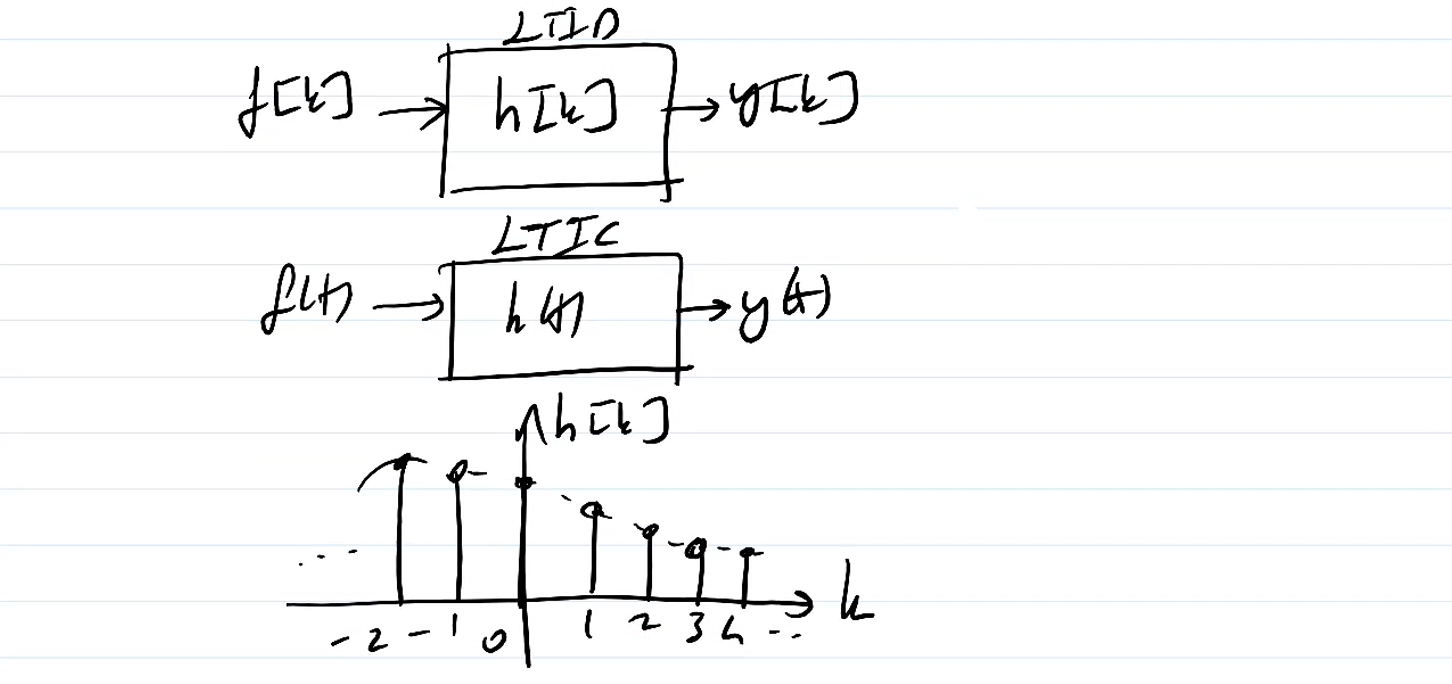 LTID
f[k] → h[k] → y[k]
LTIC
f(t) → h(t) → y(t)
h[k]
...
k
-2 -1 0 1 2 3 4 ...